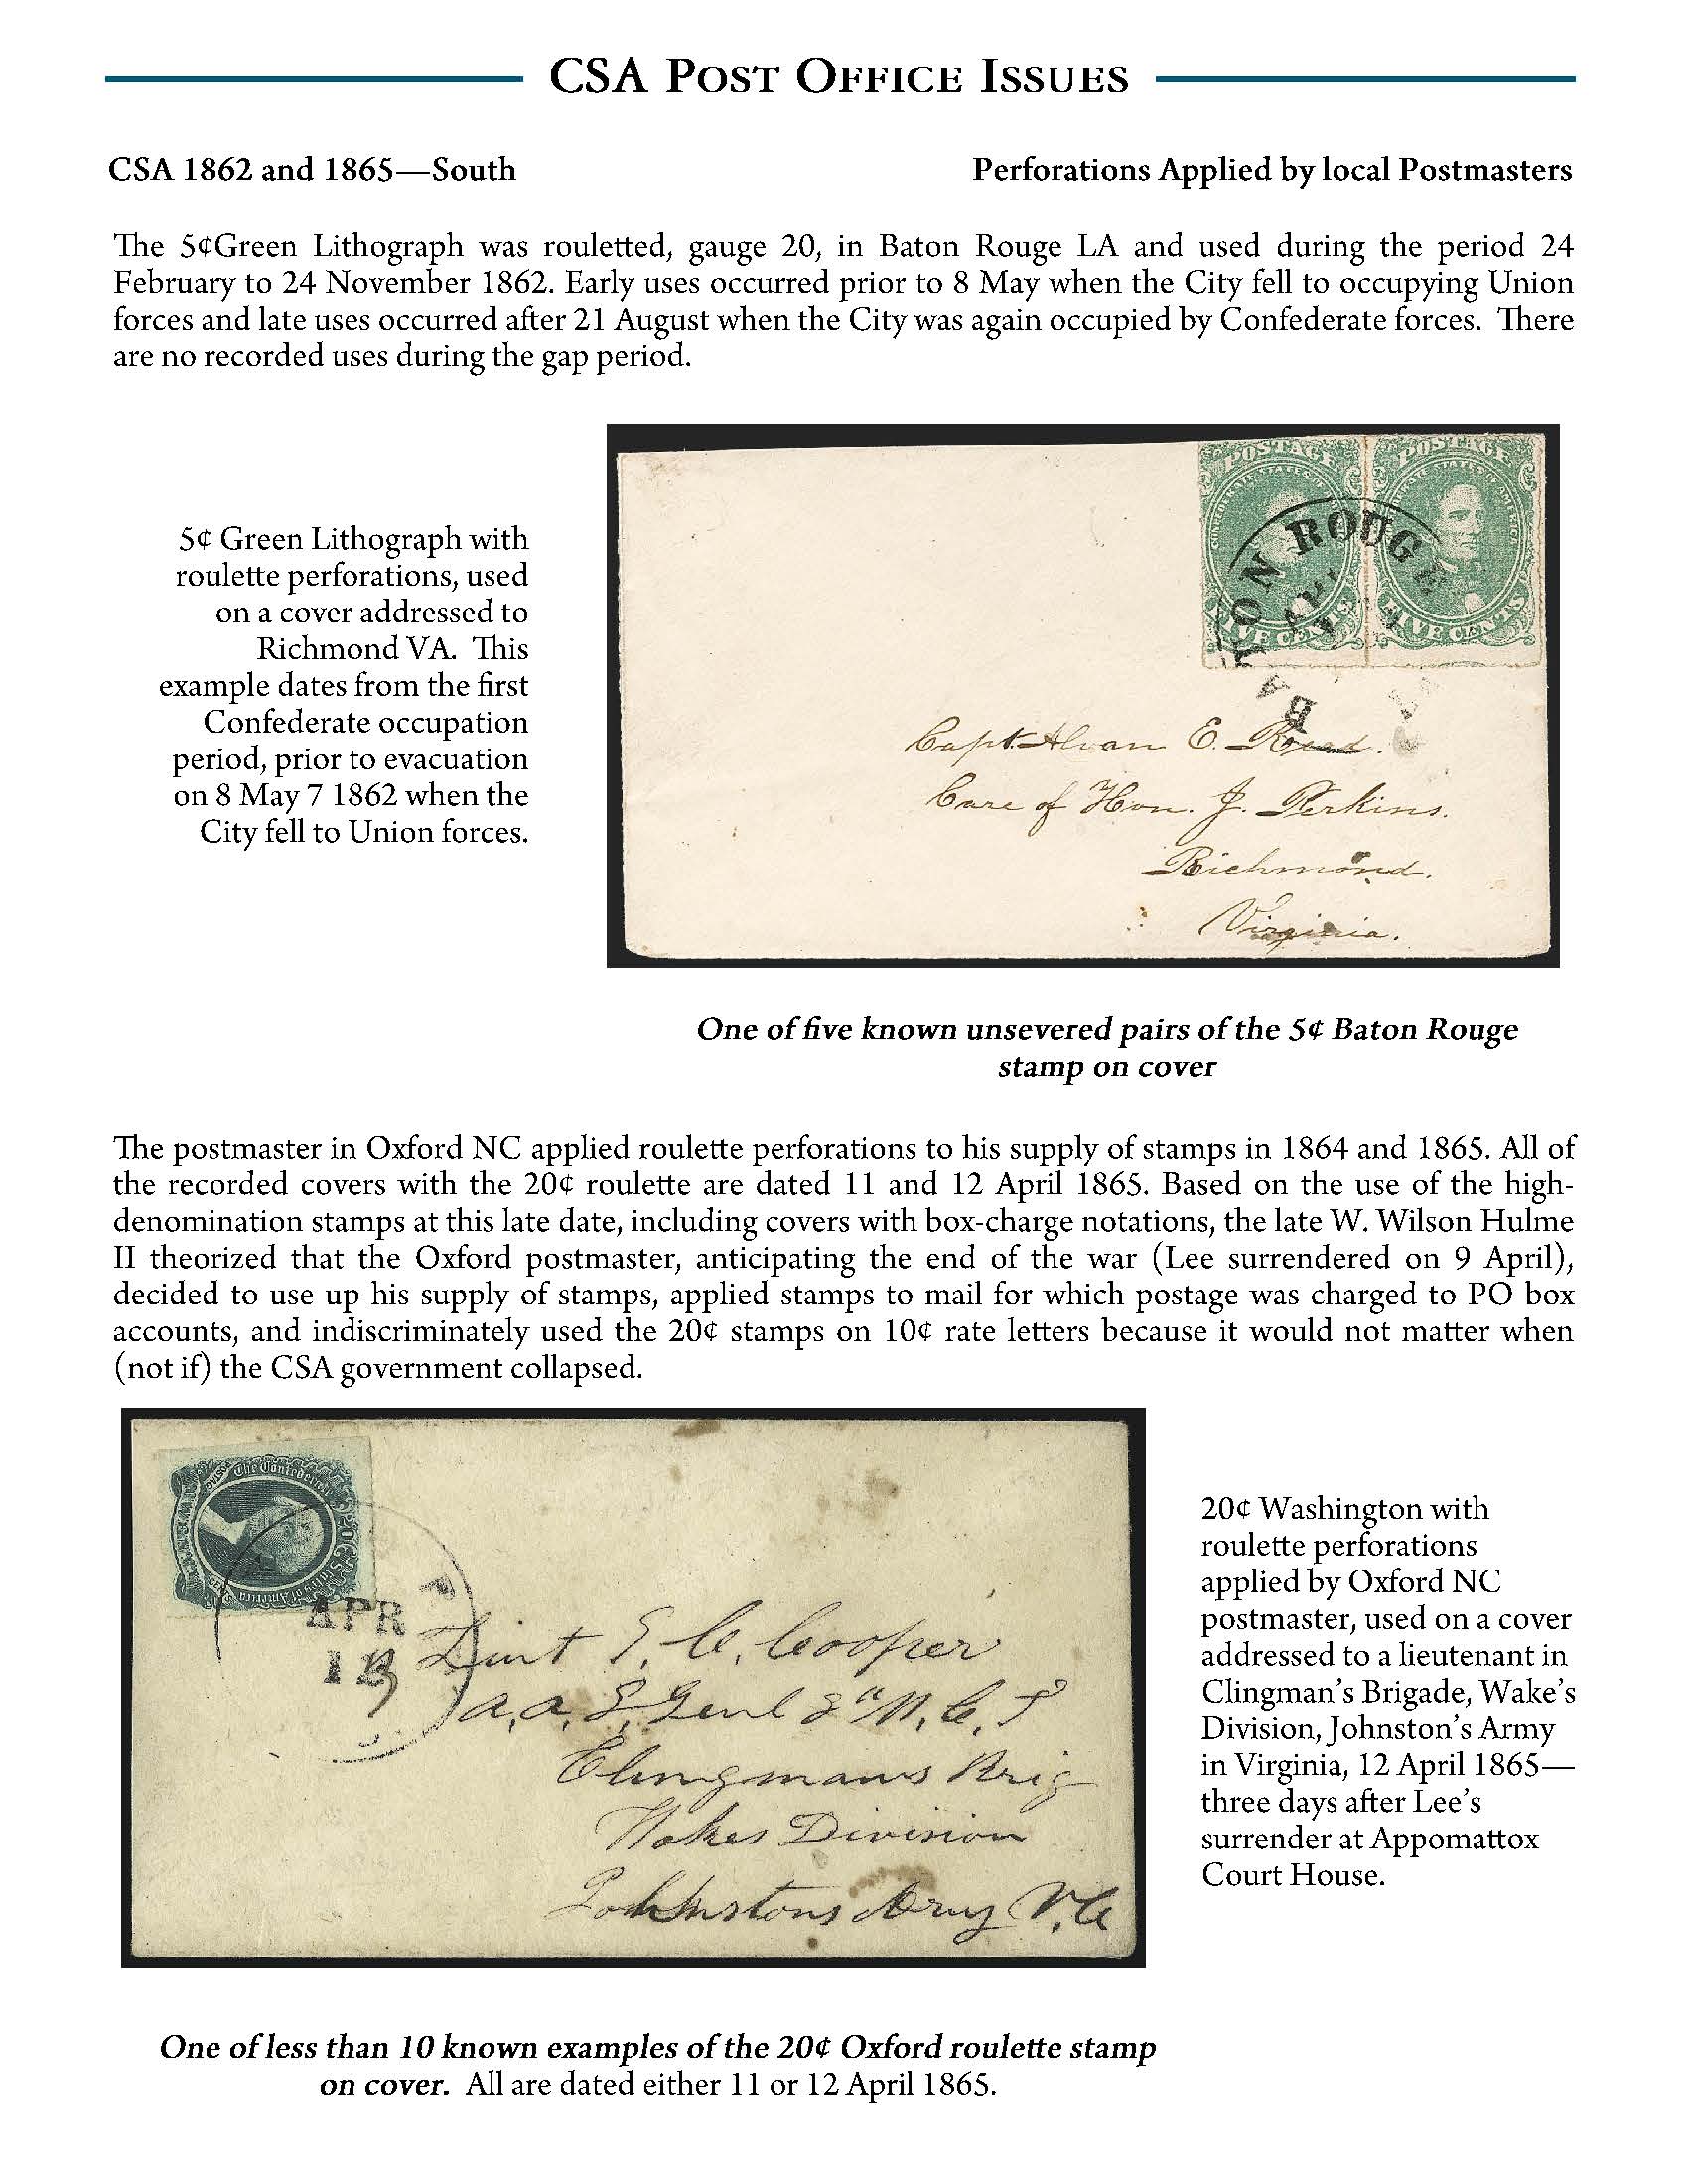 CSA Post Office Issues
CSA 1862 and 1865—South
Perforations Applied by local Postmasters
The 5¢Green Lithograph was rouletted, gauge 20, in Baton Rouge LA and used during the period 24
February to 24 November 1862. Early uses occurred prior to 8 May when the City fell to occupying Union
forces and late uses occurred after 21 August when the City was again occupied by Confederate forces. There
are no recorded uses during the gap period.
5¢ Green Lithograph with
roulette perforations, used
on a cover addressed to
Richmond VA. This
example dates from the first
Confederate occupation
period, prior to evacuation
on 8 May 7 1862 when the
City fell to Union forces.
POSTAGE
POSTAGE
FIVE CENTS
FIVE CENTS
BATON ROUGE
Capt. Alvan E. Read.
Care of Hon. J. Perkins.
Richmond.
Virginia.
One of five known unsevered pairs of the 5¢ Baton Rouge
stamp on cover
The postmaster in Oxford NC applied roulette perforations to his supply of stamps in 1864 and 1865. All of
the recorded covers with the 20¢ roulette are dated 11 and 12 April 1865. Based on the use of the high-
denomination stamps at this late date, including covers with box-charge notations, the late W. Wilson Hulme
II theorized that the Oxford postmaster, anticipating the end of the war (Lee surrendered on 9 April),
decided to use up his supply of stamps, applied stamps to mail for which postage was charged to PO box
accounts, and indiscriminately used the 20¢ stamps on 10¢ rate letters because it would not matter when
(not if) the CSA government collapsed.
The Confederate States of America
APR
12
Lieut C. Cooper
A. A. Genl N. C. T
Clingmans Brig
Wakes Division
Johnstons Army
20¢ Washington with
roulette perforations
applied by Oxford NC
postmaster, used on a cover
addressed to a lieutenant in
Clingman's Brigade, Wake's
Division, Johnston's Army
in Virginia, 12 April 1865—
three days after Lee's
surrender at Appomattox
Court House.
One of less than 10 known examples of the 20¢ Oxford roulette stamp
on cover. All are dated either 11 or 12 April 1865.